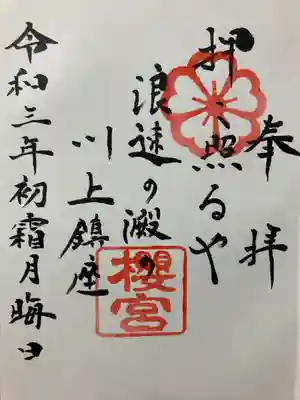 奉拝
押し照るや
浪速の澱の
川上鎮座
櫻宮
令和三年初霜月晦日